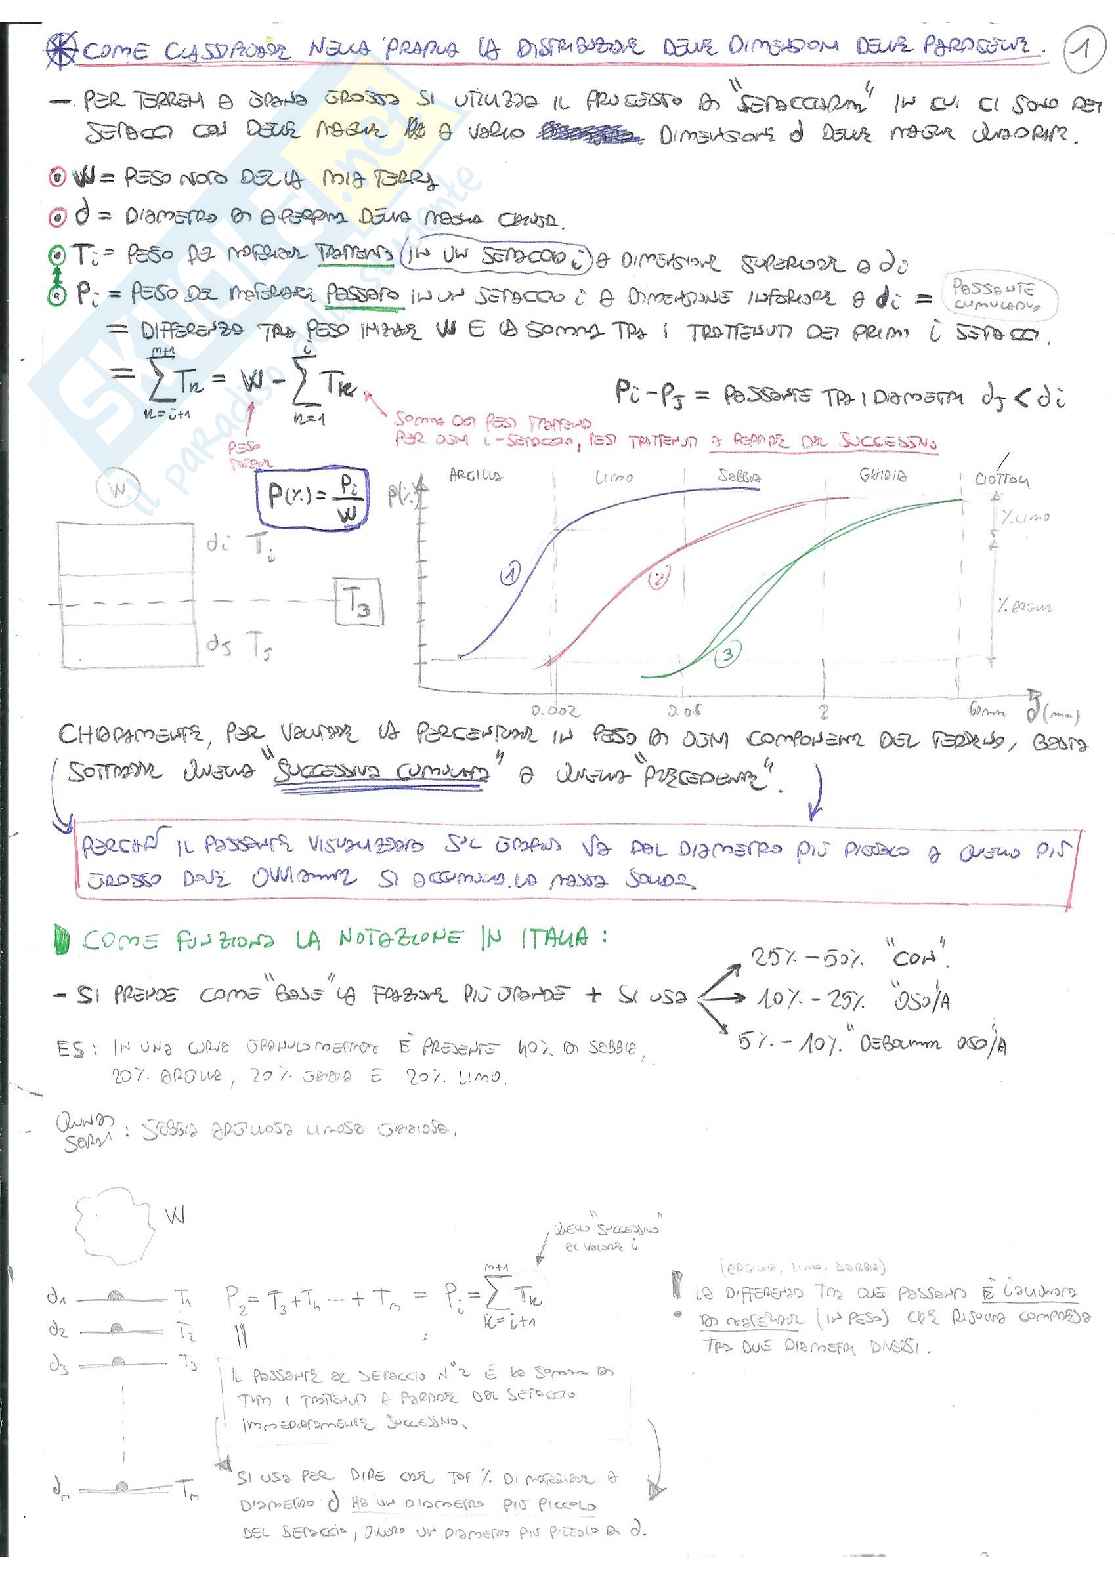 COME CLASSIFICARE NELLA PRATICA LA DISTRIBUZIONE DELLE DIMENSIONI DELLE PARTICELLE. 1
- PER TERRENI A GRANA GROSSA SI UTILIZZA IL PROCESSO DI "SETACCIATURA" IN CUI CI SONO DEI
SETACCI CON DELLE MAGLIE A VARIO DIMENSIONE d DELLE MAGLIE QUADRATE.
W = PESO NOTO DELLA MIA TERRA
d = DIAMETRO DI APERTURA DELLA MAGLIA
Ti = PESO DEL MATERIALE TRATTENUTO (IN UN SETACCIO i) A DIMENSIONE SUPERIORE A di
Pi = PESO DEL MATERIALE PASSATO IN UN SETACCIO i A DIMENSIONE INFERIORE A di = PASSANTE CUMULATIVO
= DIFFERENZA TRA PESO INIZIALE W E LA SOMMA TRA I TRATTENUTI DEI PRIMI i SETACCI.
= Σ Tk = W - Σ Tk
m+1 k=i+1 i k=1
Pi - Pj = PASSANTE TRA I DIAMETRI dj < di
SOMMA DEI PESI TRATTENUTI
PER OGNI i-SETACCIO, PESI TRATTENUTI A PARTIRE DAL SUCCESSIVO
PESO INIZIALE
W
P(%) = Pi/W
P(%)
ARGILLA LIMO SABBIA GHIAIA CIOTTOLI
% LIMO
% ARGILLA
di Ti
T3
dj Tj
1 2 3
0.002 0.06 2 60mm d(mm)
CHIARAMENTE, PER VALUTARE LA PERCENTUALE IN PESO DI OGNI COMPONENTE DEL TERRENO, BASTA
SOTTRARRE QUELLA "SUCCESSIVA CUMULATA" A QUELLA "PRECEDENTE".
PERCHÉ IL PASSANTE VISUALIZZATO SUL GRAFICO VA DAL DIAMETRO PIÙ PICCOLO A QUELLO PIÙ
GROSSO DOVE OVVIAMENTE SI ACCUMULA LA MASSA SOLIDA.
COME FUNZIONA LA NOTAZIONE IN ITALIA:
- SI PRENDE COME "BASE" LA FRAZIONE PIÙ GRANDE + SI USA
25% - 50% "CON".
10% - 25% "OSO/A
5% - 10% "DEBOLMENTE OSO/A
ES: IN UNA CURVA GRANULOMETRICA È PRESENTE 40% DI SABBIA,
20% ARGILLA, 20% GHIAIA E 20% LIMO.
QUINDI SARÀ: SABBIA ARGILLOSA LIMOSA GHIAIOSA.
W
"SUCCESSIVO"
AL VALORE i
d1 T1
d2 T2
d3 T3
dm Tm
P2 = T3 + T4 ... + Tm = Pi = Σ Tk
m+1 k=i+1
IL PASSANTE AL SETACCIO N°2 È LA SOMMA DI
TUTTI I TRATTENUTI A PARTIRE DAL SETACCIO
IMMEDIATAMENTE SUCCESSIVO.
SI USA PER DIRE CHE TOT % DI MATERIALE A
DIAMETRO d HA UN DIAMETRO PIÙ PICCOLO
DEL SETACCIO, OVVERO UN DIAMETRO PIÙ PICCOLO DI d.
(ARGILLA, LIMO, SABBIA)
LA DIFFERENZA TRA DUE PASSANTI È
DI MATERIALE (IN PESO) CHE RISULTA COMPRESA
TRA DUE DIAMETRI DIVERSI.
SKUOLA.net
il paradiso dello studente